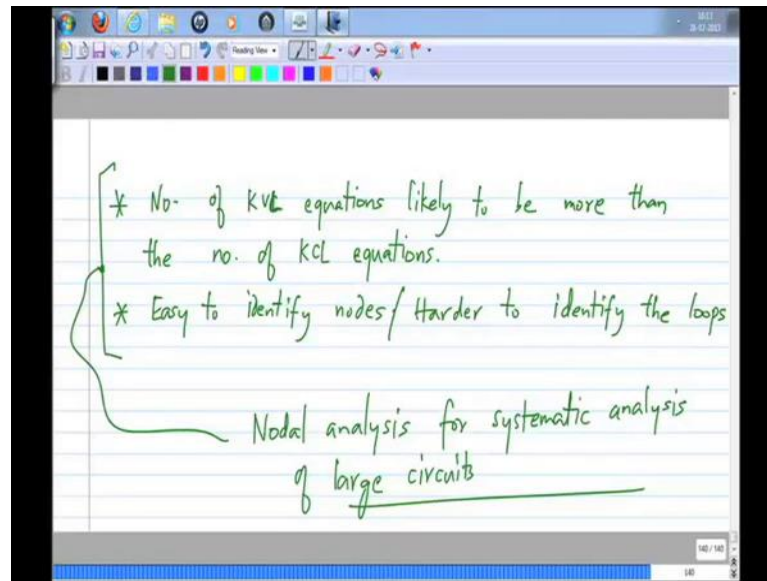 16:11
26-07-2013
Reading View
B I
* No. of KVL equations likely to be more than
the no. of KCL equations.
* Easy to identify nodes/ Harder to identify the loops
Nodal analysis for systematic analysis
of large circuits
140 / 140
140